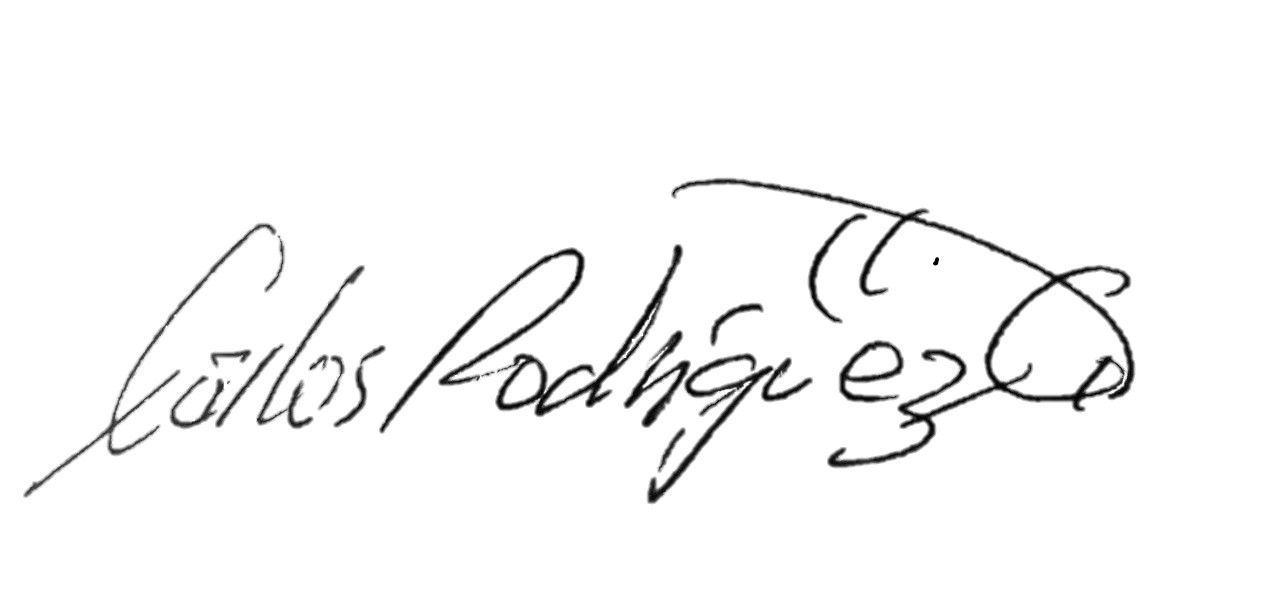 Carlos Rodriguez